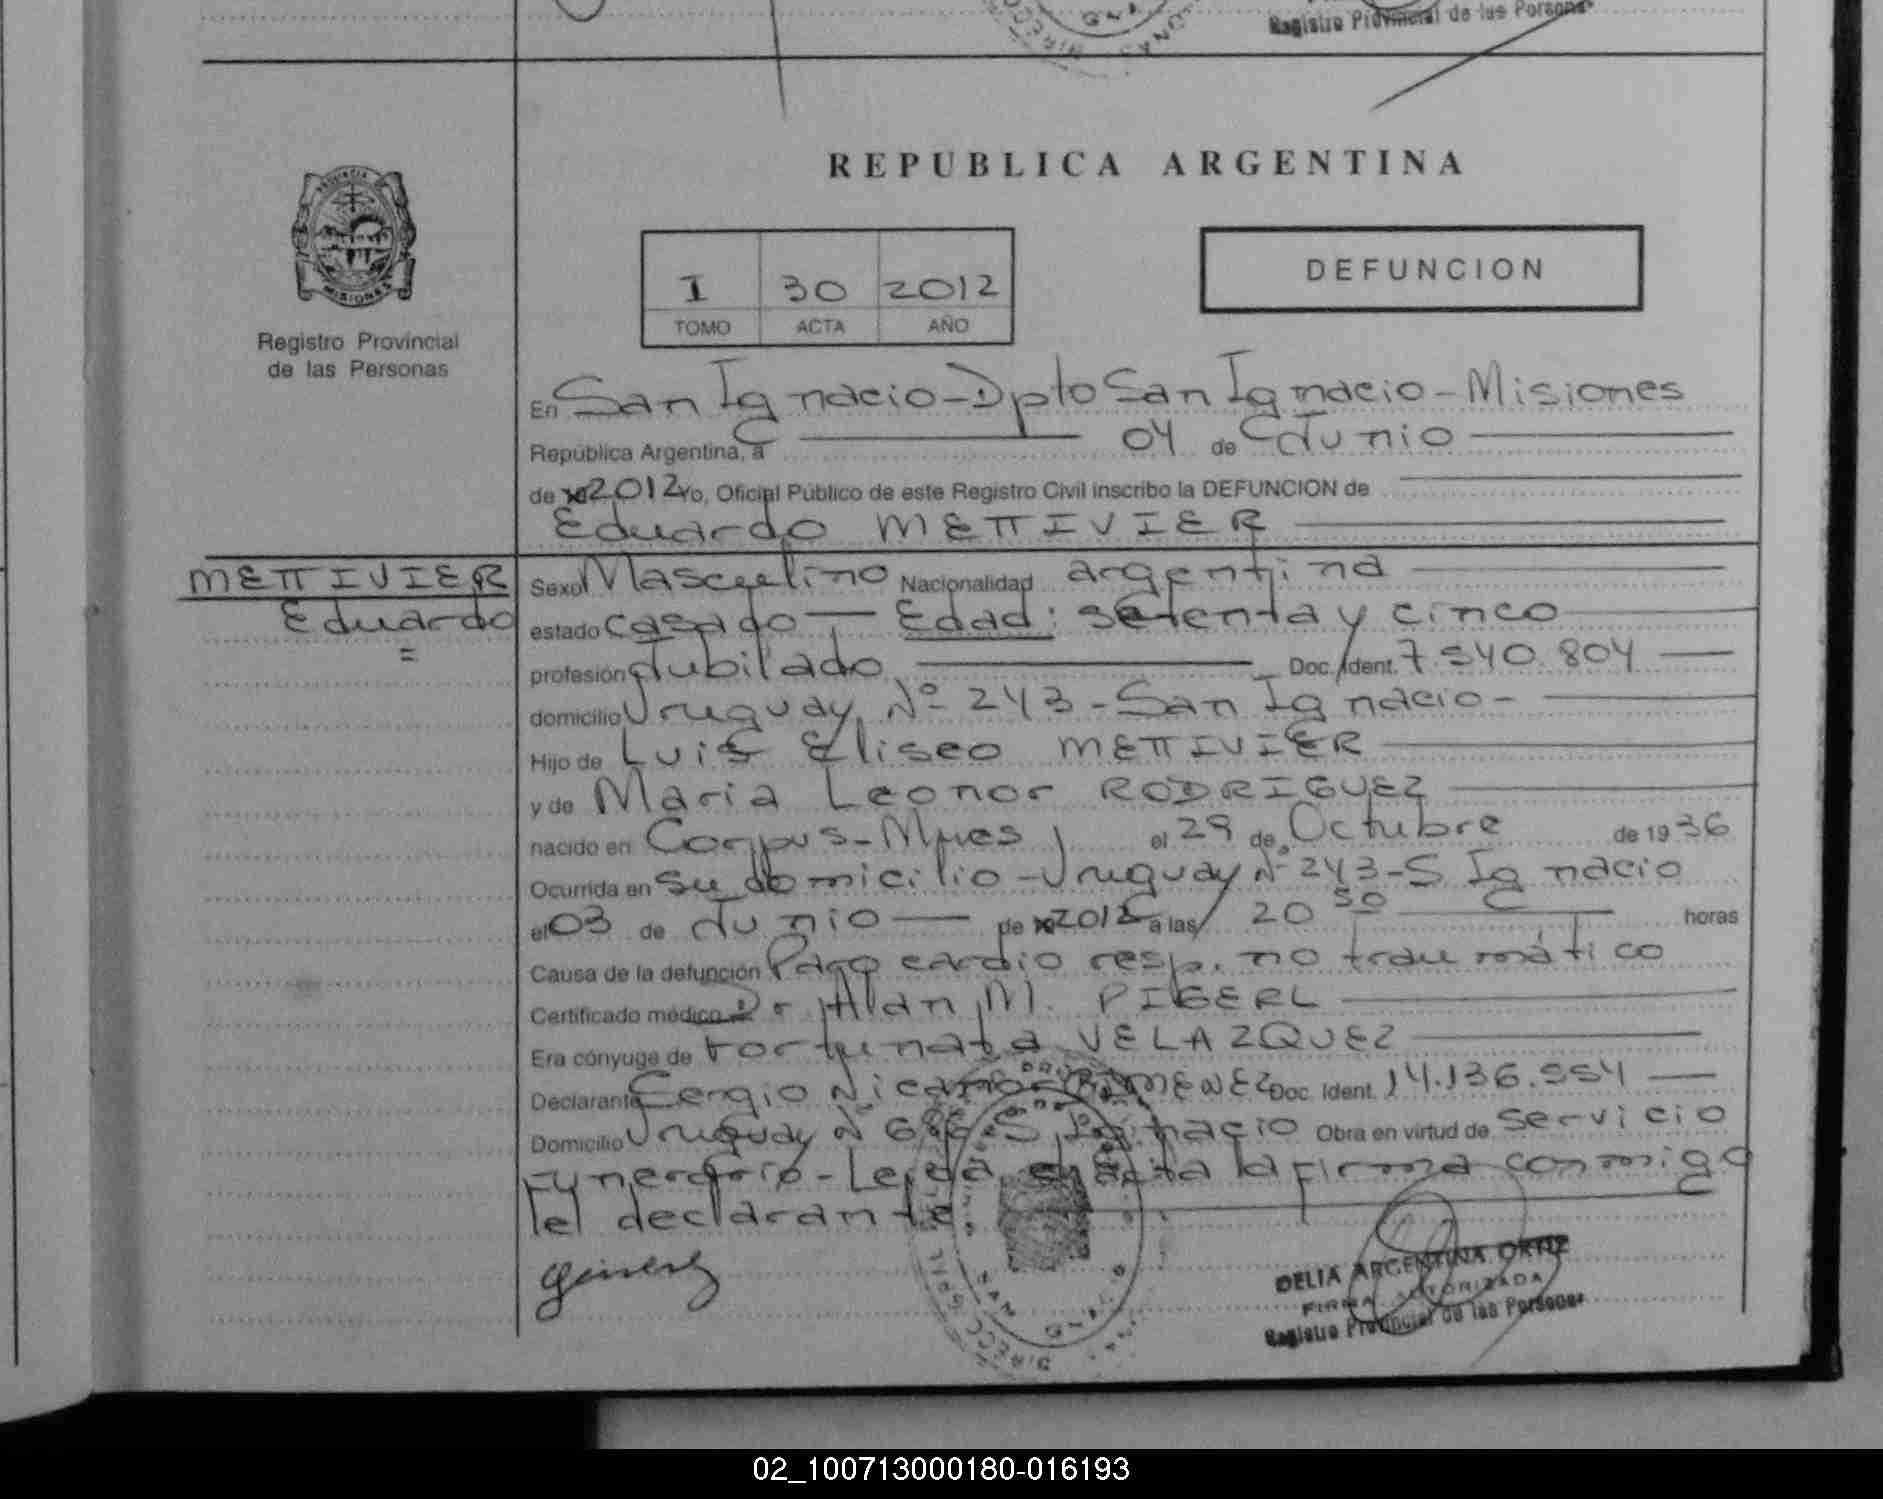 Registro Provincial de las Personas
REPUBLICA ARGENTINA
PROVINCIA
MISIONES
Registro Provincial
de las Personas
I 30 2012
TOMO ACTA AÑO
DEFUNCION
En San Ignacio - Dpto San Ignacio - Misiones
República Argentina, a 04 de Junio
de 2012 Yo, Oficial Público de este Registro Civil inscribo la DEFUNCION de
Eduardo METTIVIER
METTIVIER
Eduardo
Sexo Masculino Nacionalidad argentina
estado casado - Edad: setenta y cinco
profesión Jubilado Doc. Ident. 7.540.804
domicilio Uruguay Nº 243 - San Ignacio -
Hijo de Luis Eliseo METTIVIER
y de Maria Leonor RODRIGUEZ
nacido en Corpus - Mnes el 29 de Octubre de 1936
Ocurrida en su domicilio - Uruguay Nº 243 - S Ignacio
el 03 de Junio de 2012 a las 20 50 horas
Causa de la defunción Paro cardio resp. no traumático
Certificado médico Dr Alan M.
Era cónyuge de Fortunata VELAZQUEZ
Declarante Sergio Nicanor GIMENEZ Doc. Ident. 14.136.554
Domicilio Uruguay Nº S Ignacio Obra en virtud de servicio
funerario - Leida el acta la firma conmigo
el declarante
DELIA ARGENTINA ORTIZ
FIRMA AUTORIZADA
Registro Provincial de las Personas
02_100713000180-016193